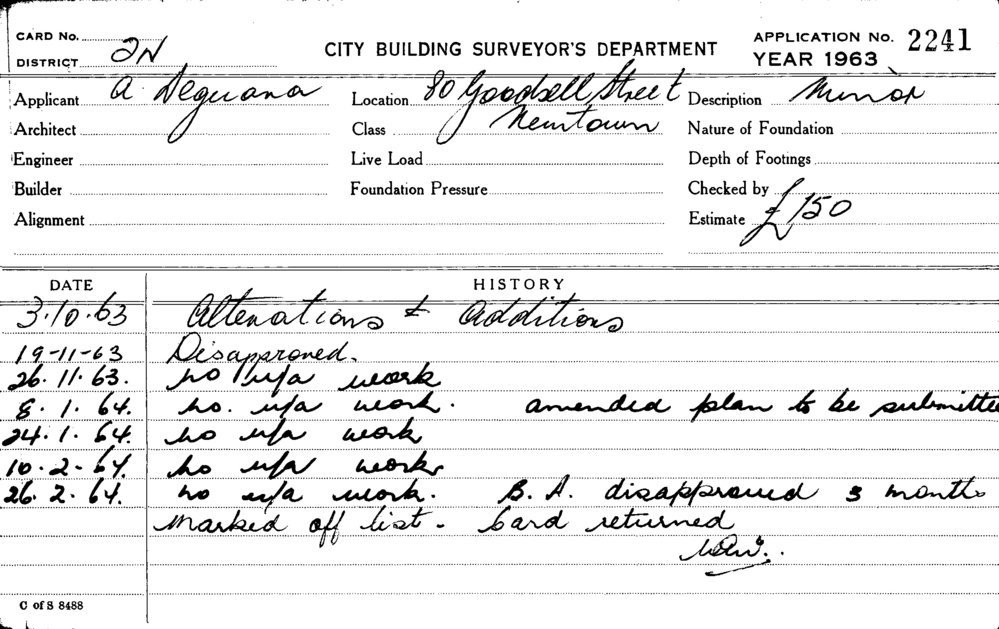 CARD No.
DISTRICT 2N
CITY BUILDING SURVEYOR'S DEPARTMENT
APPLICATION No. 2241
YEAR 1963
Applicant A. Deguara Location 80 Goodsell Street Description Minor
Architect Class Newtown Nature of Foundation
Engineer Live Load Depth of Footings
Builder Foundation Pressure Checked by
Alignment Estimate £150
DATE HISTORY
3.10.63 Alterations & Additions
19-11-63 Disapproved.
26.11.63. no u/a work
8.1.64. no. u/a work. amended plan to be submitte
24.1.64. no u/a work
10.2.64. no u/a work
26.2.64. no u/a work. B.A. disapproved 3 months
Marked off list. Card returned
C of S 8488